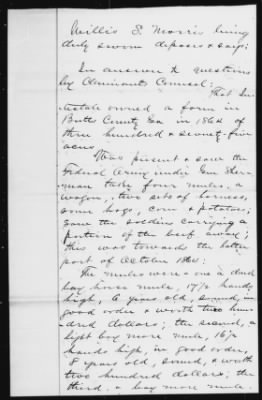 Willis S. Morris being
duly sworn deposes & says;
In answer to questions
by Claimants Counsel;
That In
testate owned a farm in
Butts County Ga in 1864 of
three hundred & seventy-five
acres
Was present & saw the
Federal Army under Gen Sher
man take four mules, a
wagon, two sets of harness,
some hogs, corn & potatoes,
saw the soldiers carrying a
portion of the beef away;
this was towards the latter
part of October 1864;
The mules were = one a dark
bay horse mule, 17½ hands
high, 6 years old, sound, in
good order & worth two hun
dred dollars; the second, a
light bay mare mule, 16½
hands high, in good order,
8 years old, sound, & worth
two hundred dollars; the
third, a bay mare mule